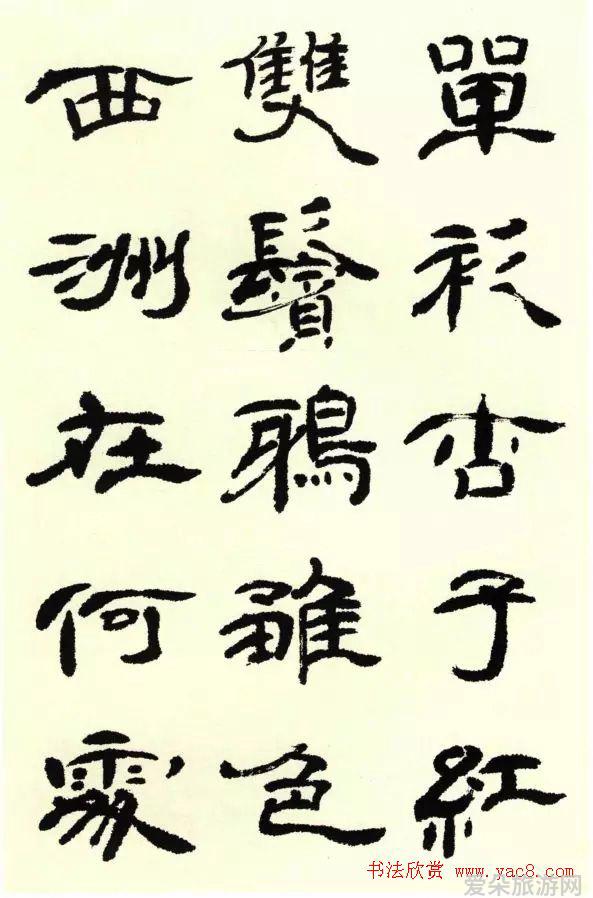 單衫杏子紅
雙鬢鴉雛色
西洲在何處
书法欣赏 www.yac8.com
爱朵旅游网